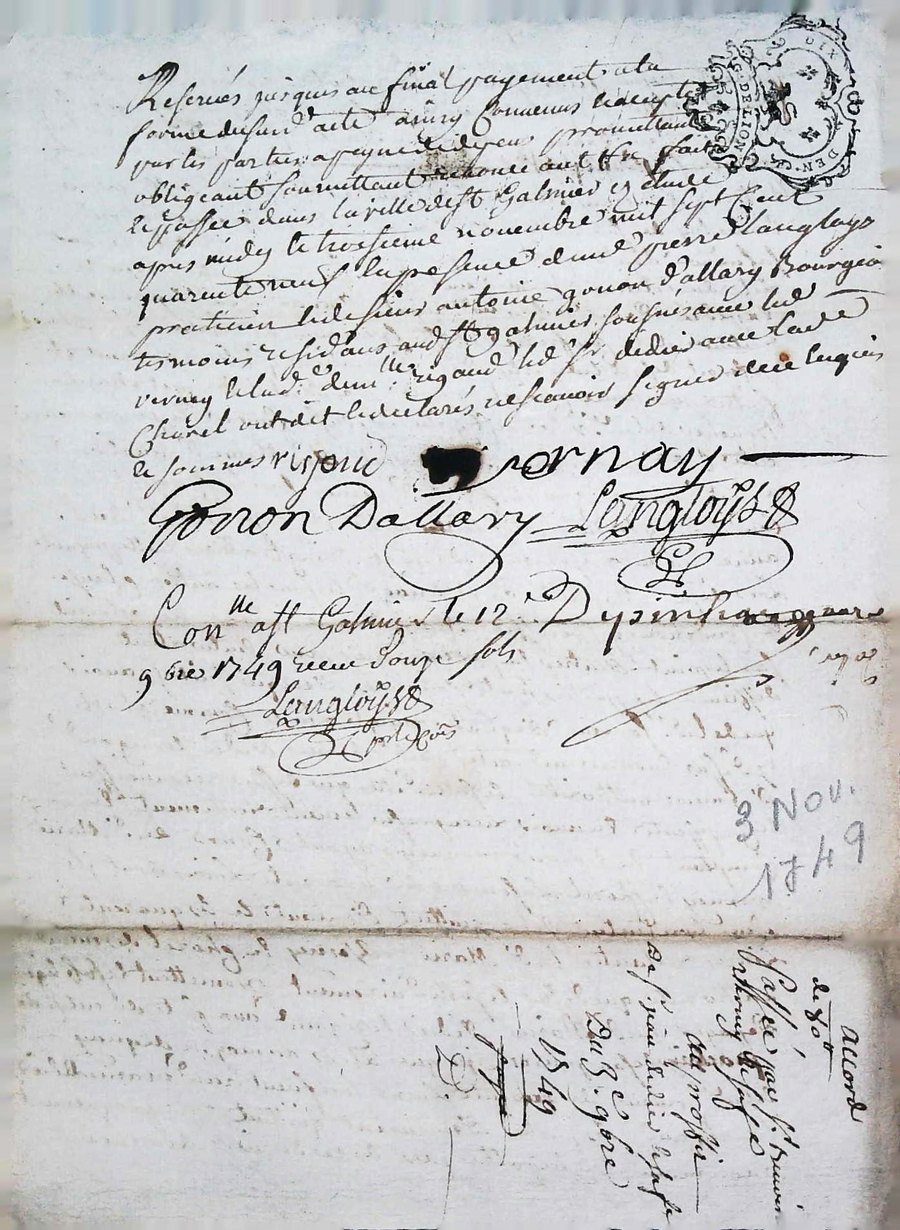 Reservés jusques au final payement a la
forme du sus d acte ainsy Convenus & accepté
par les parties a peyne de dépens promettant
obligeant soumettant renonceant &re fait
& passé dans la ville de st Galmier étude
apres midy le troisieme novembre mil sept Cent
quarente neuf en presence de me pierre langloys
praticien & de sieur antoine gonon d'allary Bourgeois
tesmoins residans aud st galmier sousignés avec led
verney & lad. demlle rigaud led sr. dédier avec lad
Charel ont dit & declarés ne scavoir signer de ce enquis
& sommes rigaud vernay
Gonon Dallary Langloys
Conlle a st Galmier le 12e
9bre 1749 receu Douze sols
Langloys
DIX DEN.
G. DE LION
3 Nov.
1749
accord
de 80tt
Passée par Sr
verney
au proffit
de sr jean dedier
Du 3e 9bre
1749